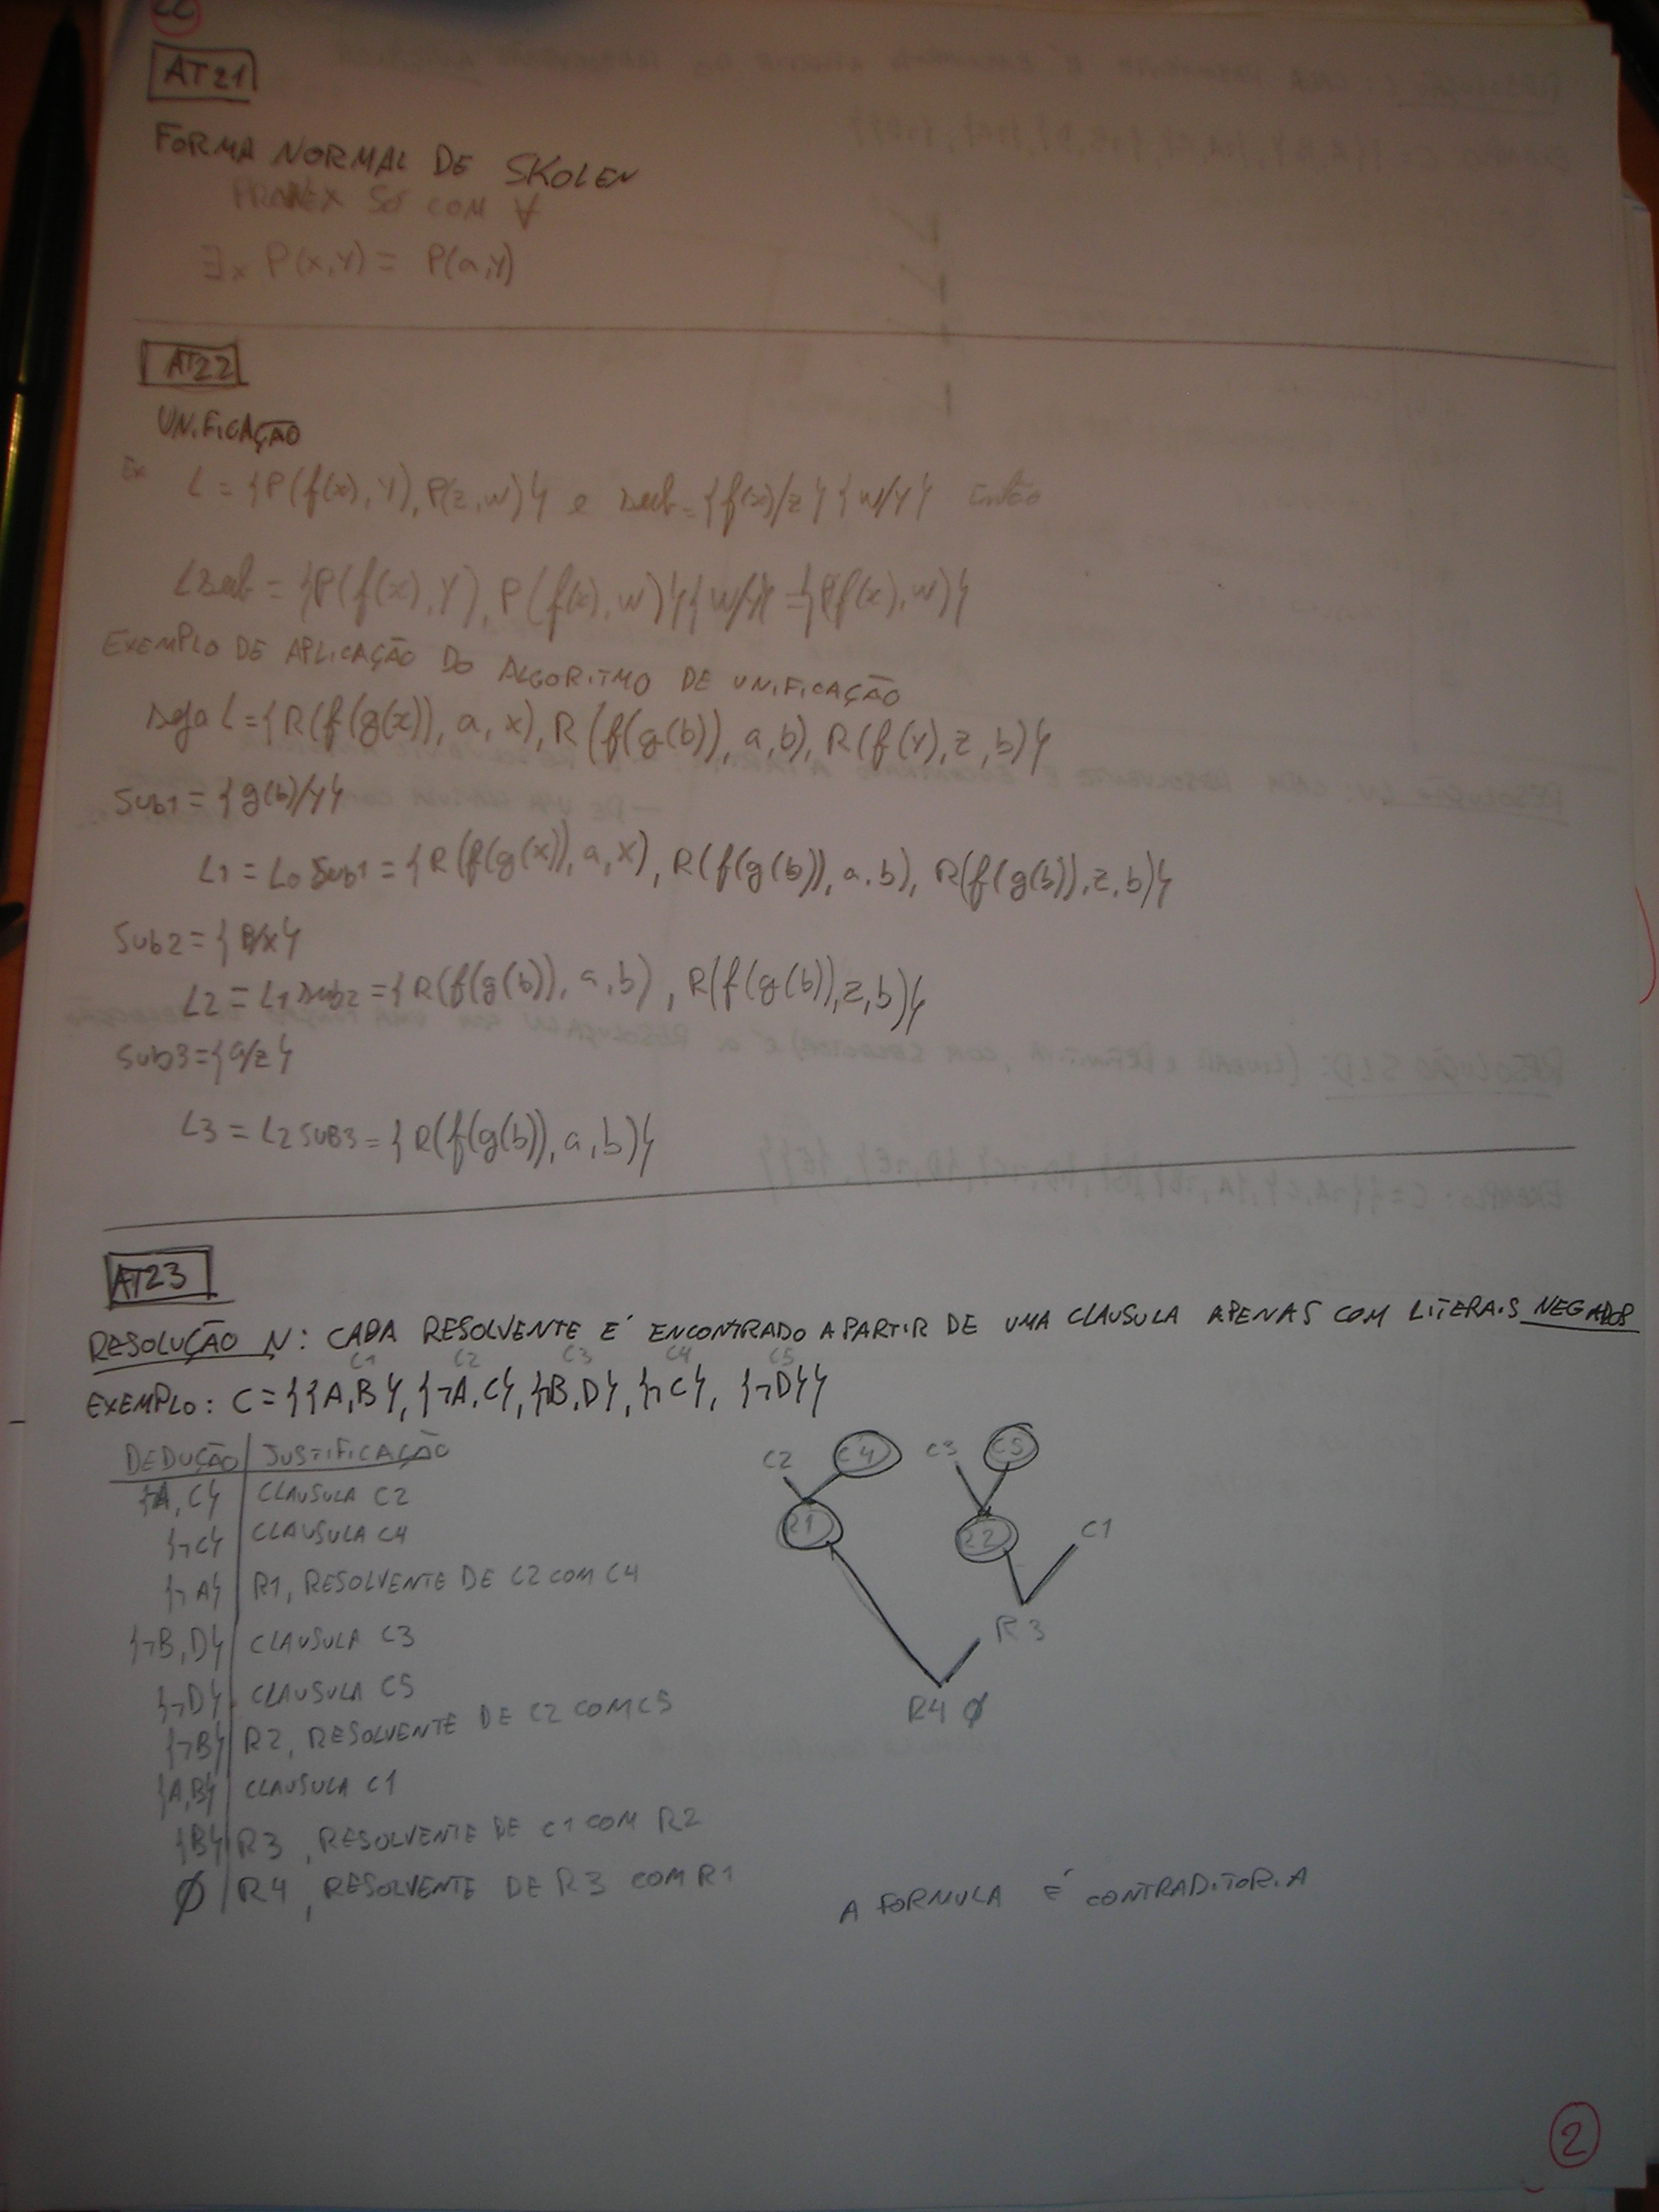 AT21
FORMA NORMAL DE SKOLEN
PRONEX SÓ COM ∀
∃x P(x,Y) = P(a,Y)
AT22
UNIFICAÇÃO
Ex L = {P(f(x),Y), P(z,w)} e sub = {f(x)/z}{w/Y} então
Lsub = {P(f(x),Y), P(f(x),w)}{w/Y} = {P(f(x),w)}
EXEMPLO DE APLICAÇÃO DO ALGORITMO DE UNIFICAÇÃO
seja L = {R(f(g(x)), a, x), R(f(g(b)), a, b), R(f(Y), z, b)}
Sub1 = {g(b)/Y}
L1 = L0 Sub1 = {R(f(g(x)), a, x), R(f(g(b)), a, b), R(f(g(b)), z, b)}
Sub2 = {B/x}
L2 = L1 sub2 = {R(f(g(b)), a, b), R(f(g(b)), z, b)}
Sub3 = {a/z}
L3 = L2 SUB3 = {R(f(g(b)), a, b)}
AT23
RESOLUÇÃO N: CADA RESOLVENTE É ENCONTRADO A PARTIR DE UMA CLAUSULA APENAS COM LITERAIS NEGADOS
C1 C2 C3 C4 C5
EXEMPLO: C = {{A,B}, {¬A,C}, {¬B,D}, {¬C}, {¬D}}
DEDUÇÃO JUSTIFICAÇÃO
{¬A,C} CLAUSULA C2
{¬C} CLAUSULA C4
{¬A} R1, RESOLVENTE DE C2 COM C4
{¬B,D} CLAUSULA C3
{¬D} CLAUSULA C5
{¬B} R2, RESOLVENTE DE C2 COM C5
{A,B} CLAUSULA C1
{B} R3, RESOLVENTE DE C1 COM R2
∅ R4, RESOLVENTE DE R3 COM R1
C2 C4 C3 C5
R1 R2 C1
R3
R4 ∅
A FORNULA É CONTRADITORIA
2